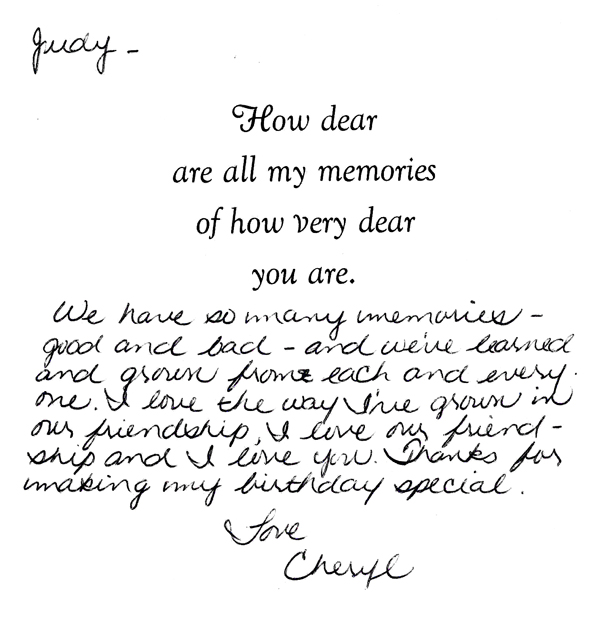 Judy -
How dear
are all my memories
of how very dear
you are.
We have so many memories -
good and bad - and we've learned
and grown from each and every
one. I love the way I've grown in
our friendship, I love our friend-
ship and I love you. Thanks for
making my birthday special.
Love
Cheryl